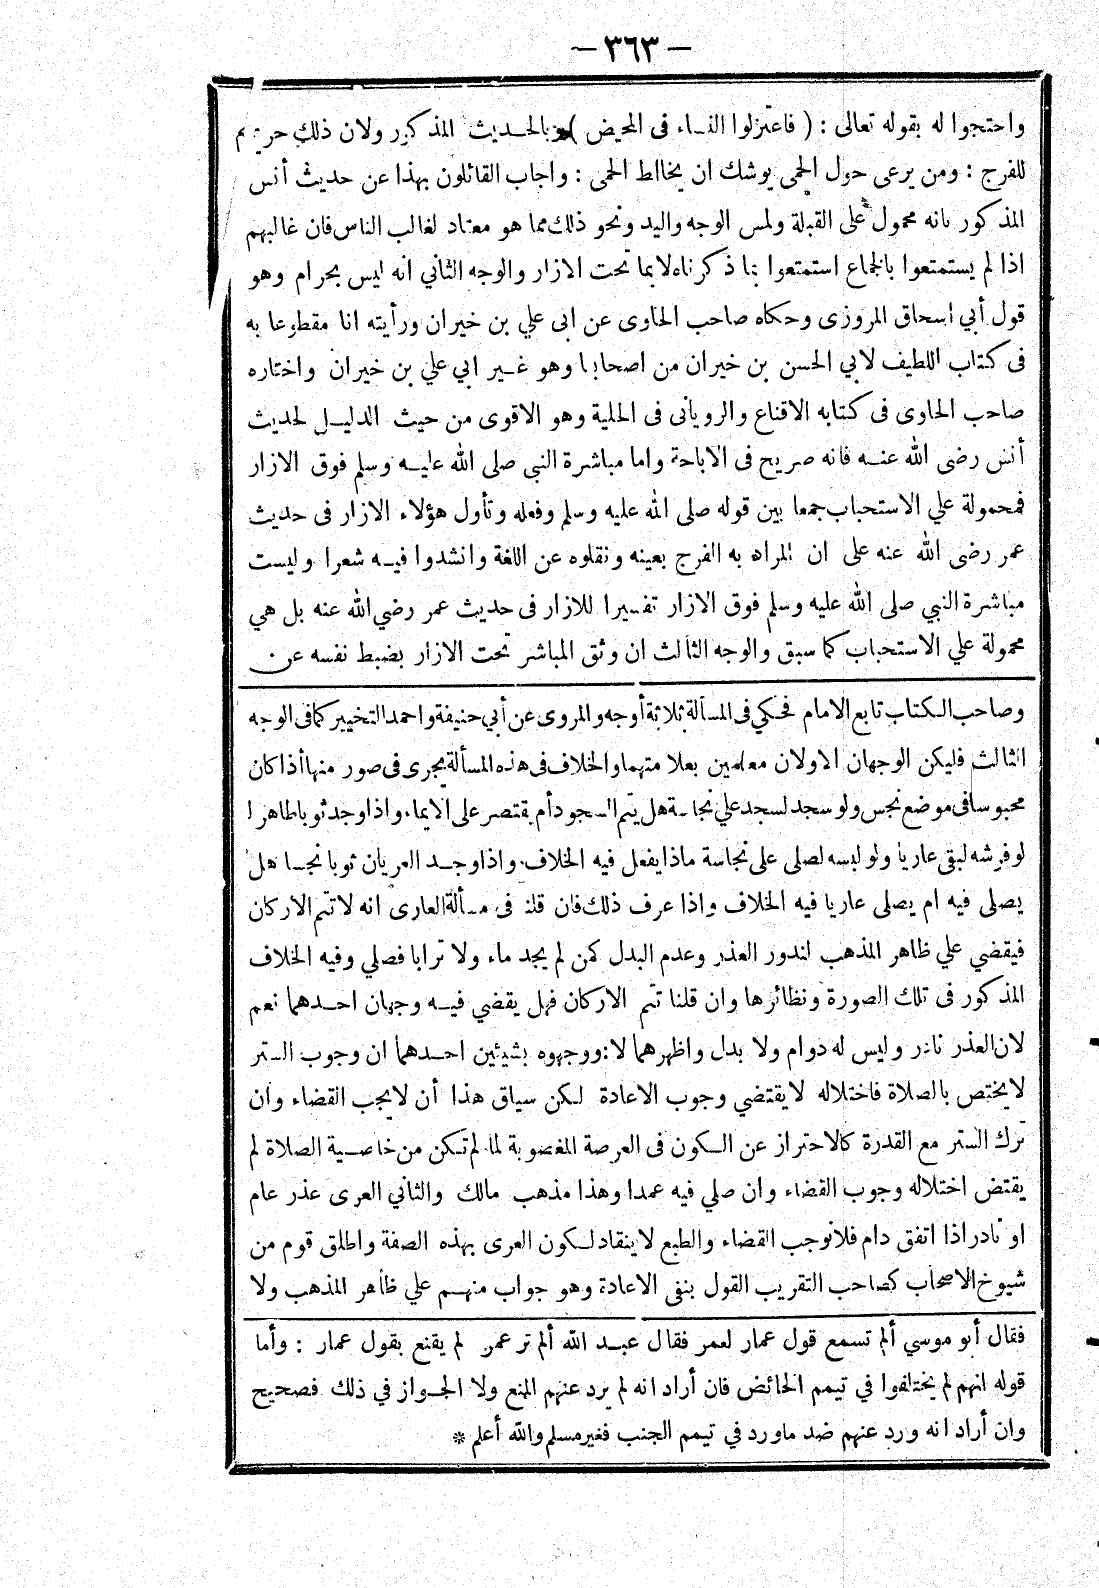 — ٣٦٣ —
واحتجوا له بقوله تعالى : ( فاعتزلوا النساء فى المحيض ) وبالحديث المذكور ولان ذلك حريم
للفرج : ومن يرعى حول الحمى يوشك ان يخالط الحمى : واجاب القائلون بهذا عن حديث أنس
المذكور بانه محمول على القبلة ولمس الوجه واليد ونحو ذلك مما هو معتاد لغالب الناس فان غالبهم
اذا لم يستمتعوا بالجماع استمتعوا بما ذكرناه لا بما تحت الازار والوجه الثاني انه ليس بحرام وهو
قول أبي اسحاق المروزى وحكاه صاحب الحاوى عن ابى علي بن خيران ورأيته انا مقطوعا به
فى كتاب اللطيف لابي الحسن بن خيران من اصحابنا وهو غير ابي علي بن خيران واختاره
صاحب الحاوى فى كتابه الاقناع والرويانى فى الحلية وهو الاقوى من حيث الدليل لحديث
أنس رضى الله عنه فانه صريح فى الاباحة واما مباشرة النبى صلى الله عليه وسلم فوق الازار
فمحمولة علي الاستحباب جمعا بين قوله صلى الله عليه وسلم وفعله وتأول هؤلاء الازار فى حديث
عمر رضى الله عنه على ان المراد به الفرج بعينه ونقلوه عن اللغة وانشدوا فيه شعرا وليست
مباشرة النبي صلى الله عليه وسلم فوق الازار تفسيرا للازار فى حديث عمر رضي الله عنه بل هي
محمولة علي الاستحباب كما سبق والوجه الثالث ان وثق المباشر تحت الازار بضبط نفسه عن
وصاحب الكتاب تابع الامام فحكي فى المسألة ثلاثة أوجه والمروى عن أبي حنيفة واحمد التخيير كما فى الوجه
الثالث فليكن الوجهان الاولان معلمين بعلامتهما والخلاف فى هذه المسألة يجرى فى صور منها أذا كان
محبوسا فى موضع نجس ولو سجد لسجد علي نجاسة هل يتم السجود أم يقتصر على الايماء واذا وجد ثوبا طاهرا
لو فرشه لبقى عاريا ولو لبسه لصلى على نجاسة ماذا يفعل فيه الخلاف واذا وجد العريان ثوبا نجسا هل
يصلى فيه ام يصلى عاريا فيه الخلاف واذا عرف ذلك فان قلنا فى مسألة العارى انه لا تتم الاركان
فيقضي علي ظاهر المذهب لندور العذر وعدم البدل كمن لم يجد ماء ولا ترابا فصلي وفيه الخلاف
المذكور فى تلك الصورة ونظائرها وان قلنا تتم الاركان فهل يقضي فيه وجهان احدهما نعم
لان العذر نادر وليس له دوام ولا بدل واظهرهما لا : ووجهوه بشيئين احدهما ان وجوب الستر
لا يختص بالصلاة فاختلاله لا يقتضي وجوب الاعادة لكن سياق هذا أن لا يجب القضاء وان
ترك الستر مع القدرة كالاحتراز عن الكون فى العرصة المغصوبة لما لم تكن من خاصية الصلاة لم
يقتض اختلاله وجوب القضاء وان صلي فيه عمدا وهذا مذهب مالك والثاني العرى عذر عام
او نادر اذا اتفق دام فلا نوجب القضاء والطبع لا ينقاد لكون العرى بهذه الصفة واطلق قوم من
شيوخ الاصحاب كصاحب التقريب القول بنفى الاعادة وهو جواب منهم علي ظاهر المذهب ولا
فقال أبو موسي ألم تسمع قول عمار لعمر فقال عبد الله ألم تر عمر لم يقنع بقول عمار : وأما
قوله انهم لم يختلفوا في تيمم الحائض فان أراد انه لم يرد عنهم المنع ولا الجواز في ذلك فصحيح
وان أراد انه ورد عنهم ضد ماورد في تيمم الجنب فغير مسلم والله أعلم *